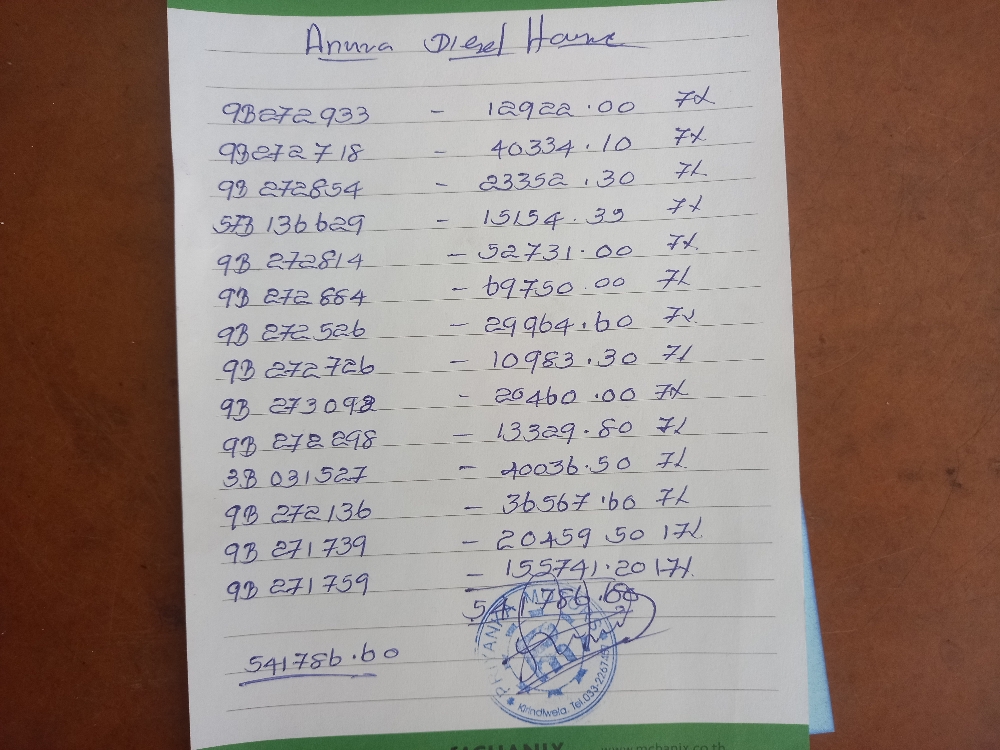 Anura Diesel House
9B272933 - 12922.00 7%
9B272718 - 40334.10 7%
9B 272854 - 23352.30 7%
57B 136629 - 15154.39 7%
9B 272814 - 52731.00 7%
9B 272884 - 69750.00 7%
9B 272526 - 29964.60 7%
9B 272726 - 10983.30 7%
9B 273098 - 20460.00 7%
9B 272298 - 13329.80 7%
3B 031527 - 40036.50 7%
9B 272136 - 36567.60 7%
9B 271739 - 20459 50 17%
9B 271759 - 155741.20 17%
541786.60
PRIYANKA MOTORS
Kirindiwela. Tel.033-2267
541786.60
www.mchanix.co.th